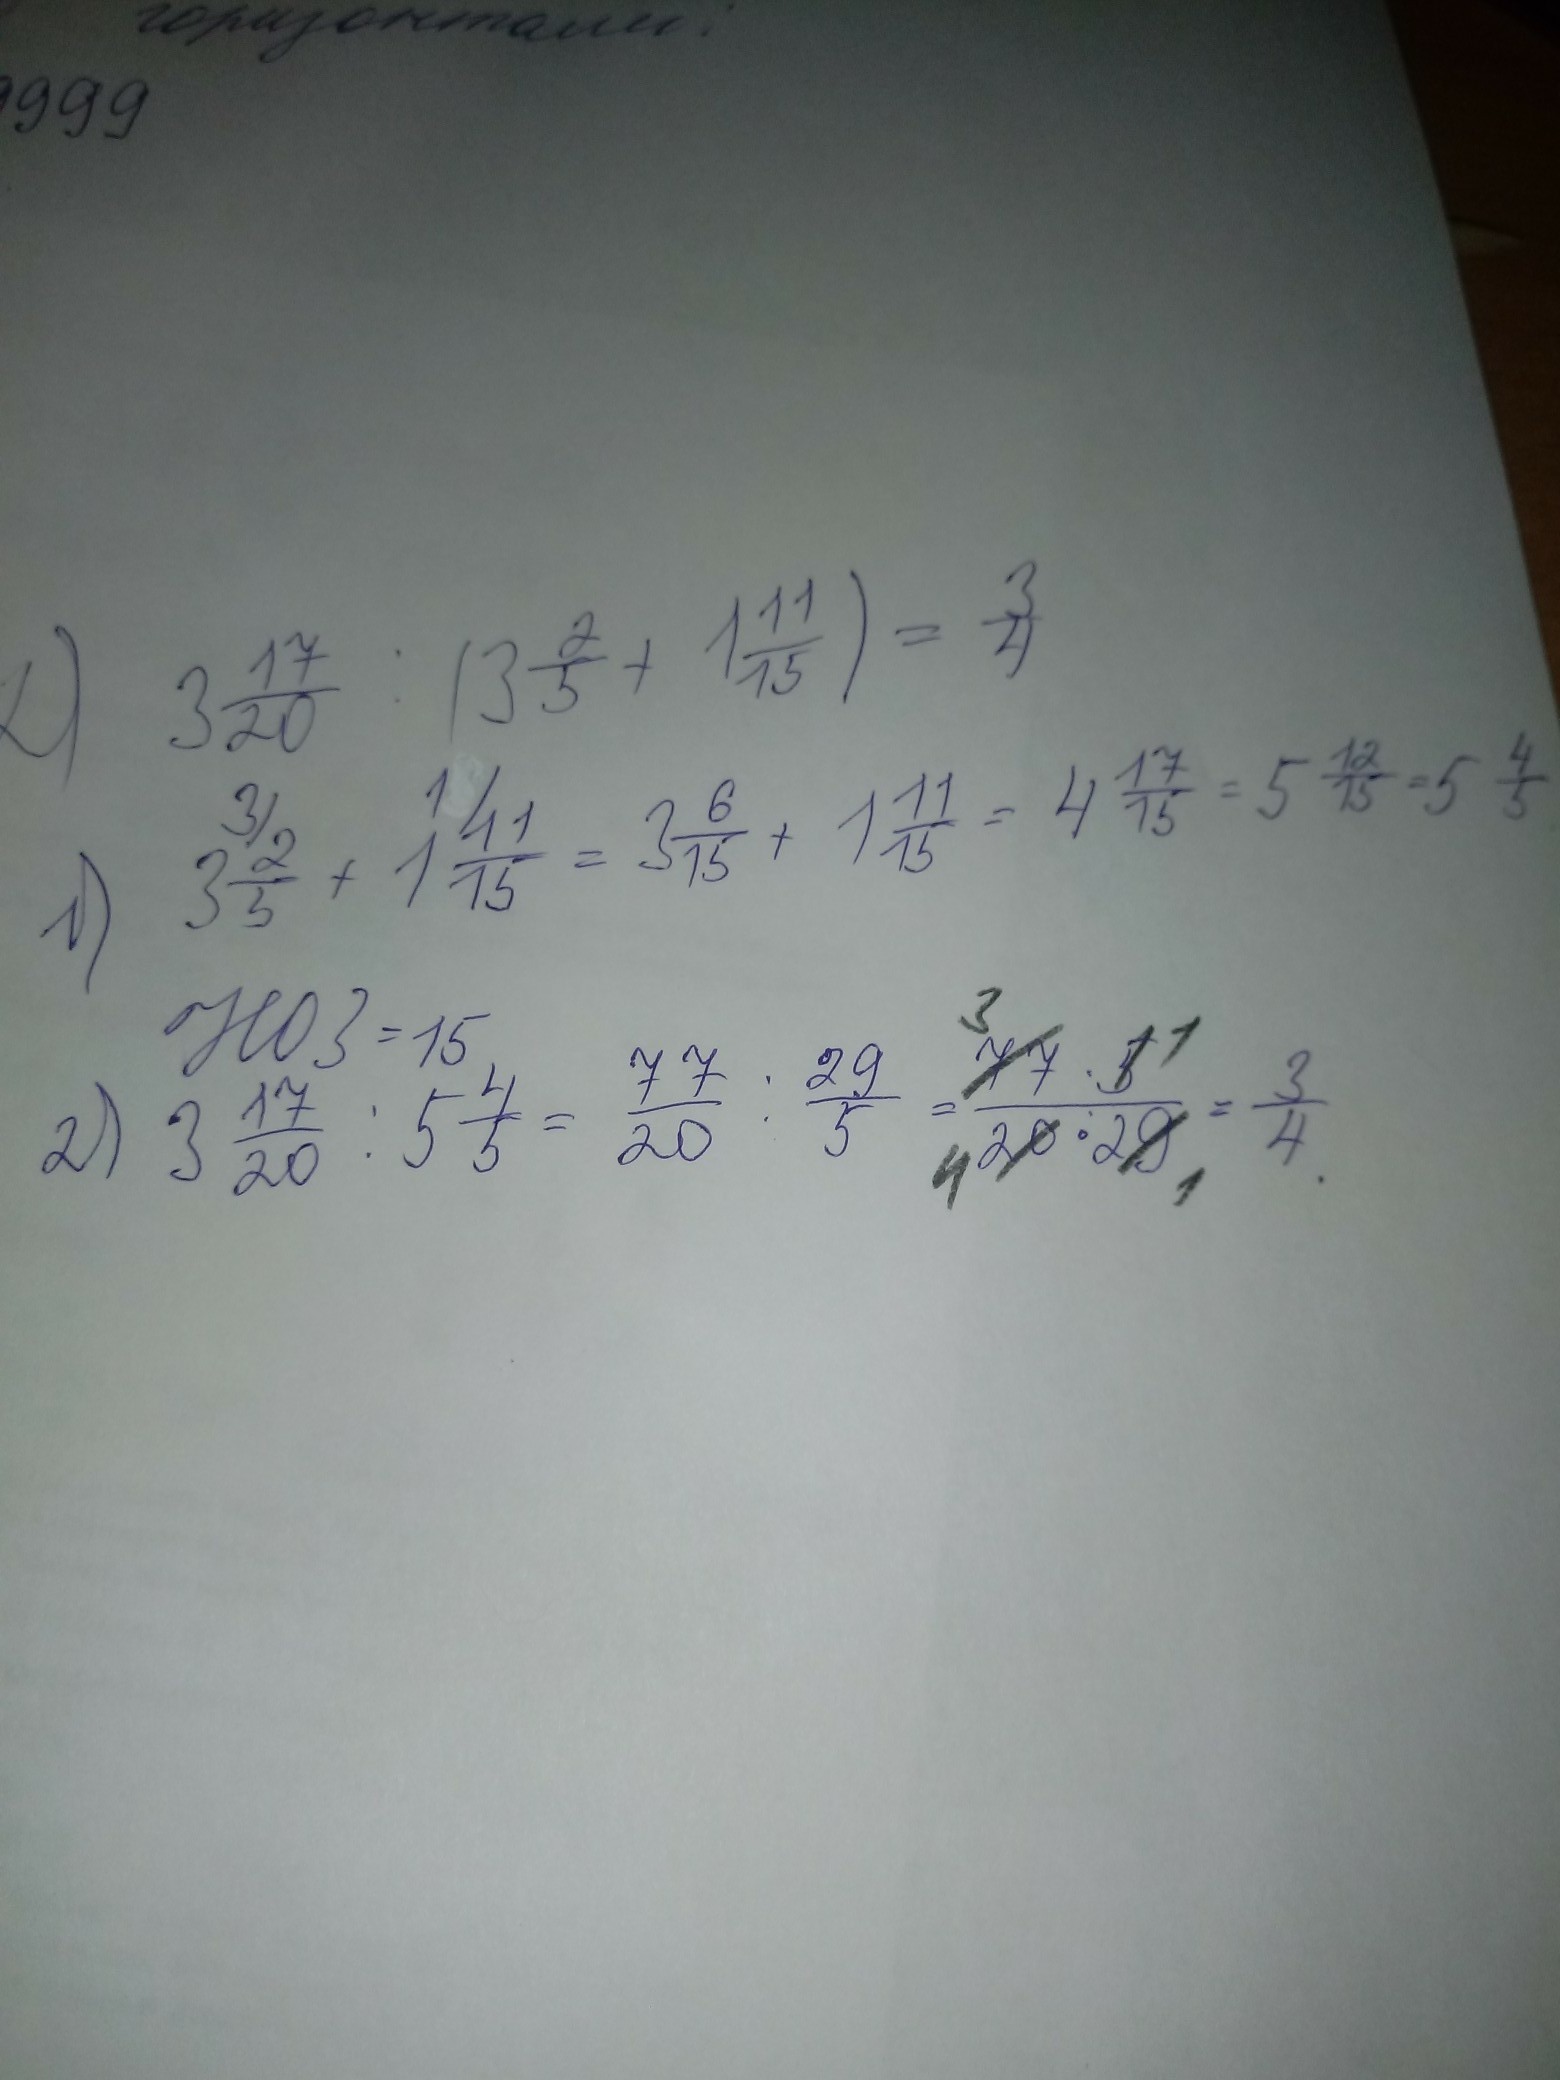 горизонтали:
9999
2) 3 17/20 : (3 2/5 + 1 11/15) = 3/4
1) 3 2/5 + 1 11/15 = 3 6/15 + 1 11/15 = 4 17/15 = 5 12/15 = 5 4/5
НОЗ = 15
2) 3 17/20 : 5 4/5 = 77/20 : 29/5 = 77 · 5/20 · 29 = 3/4.